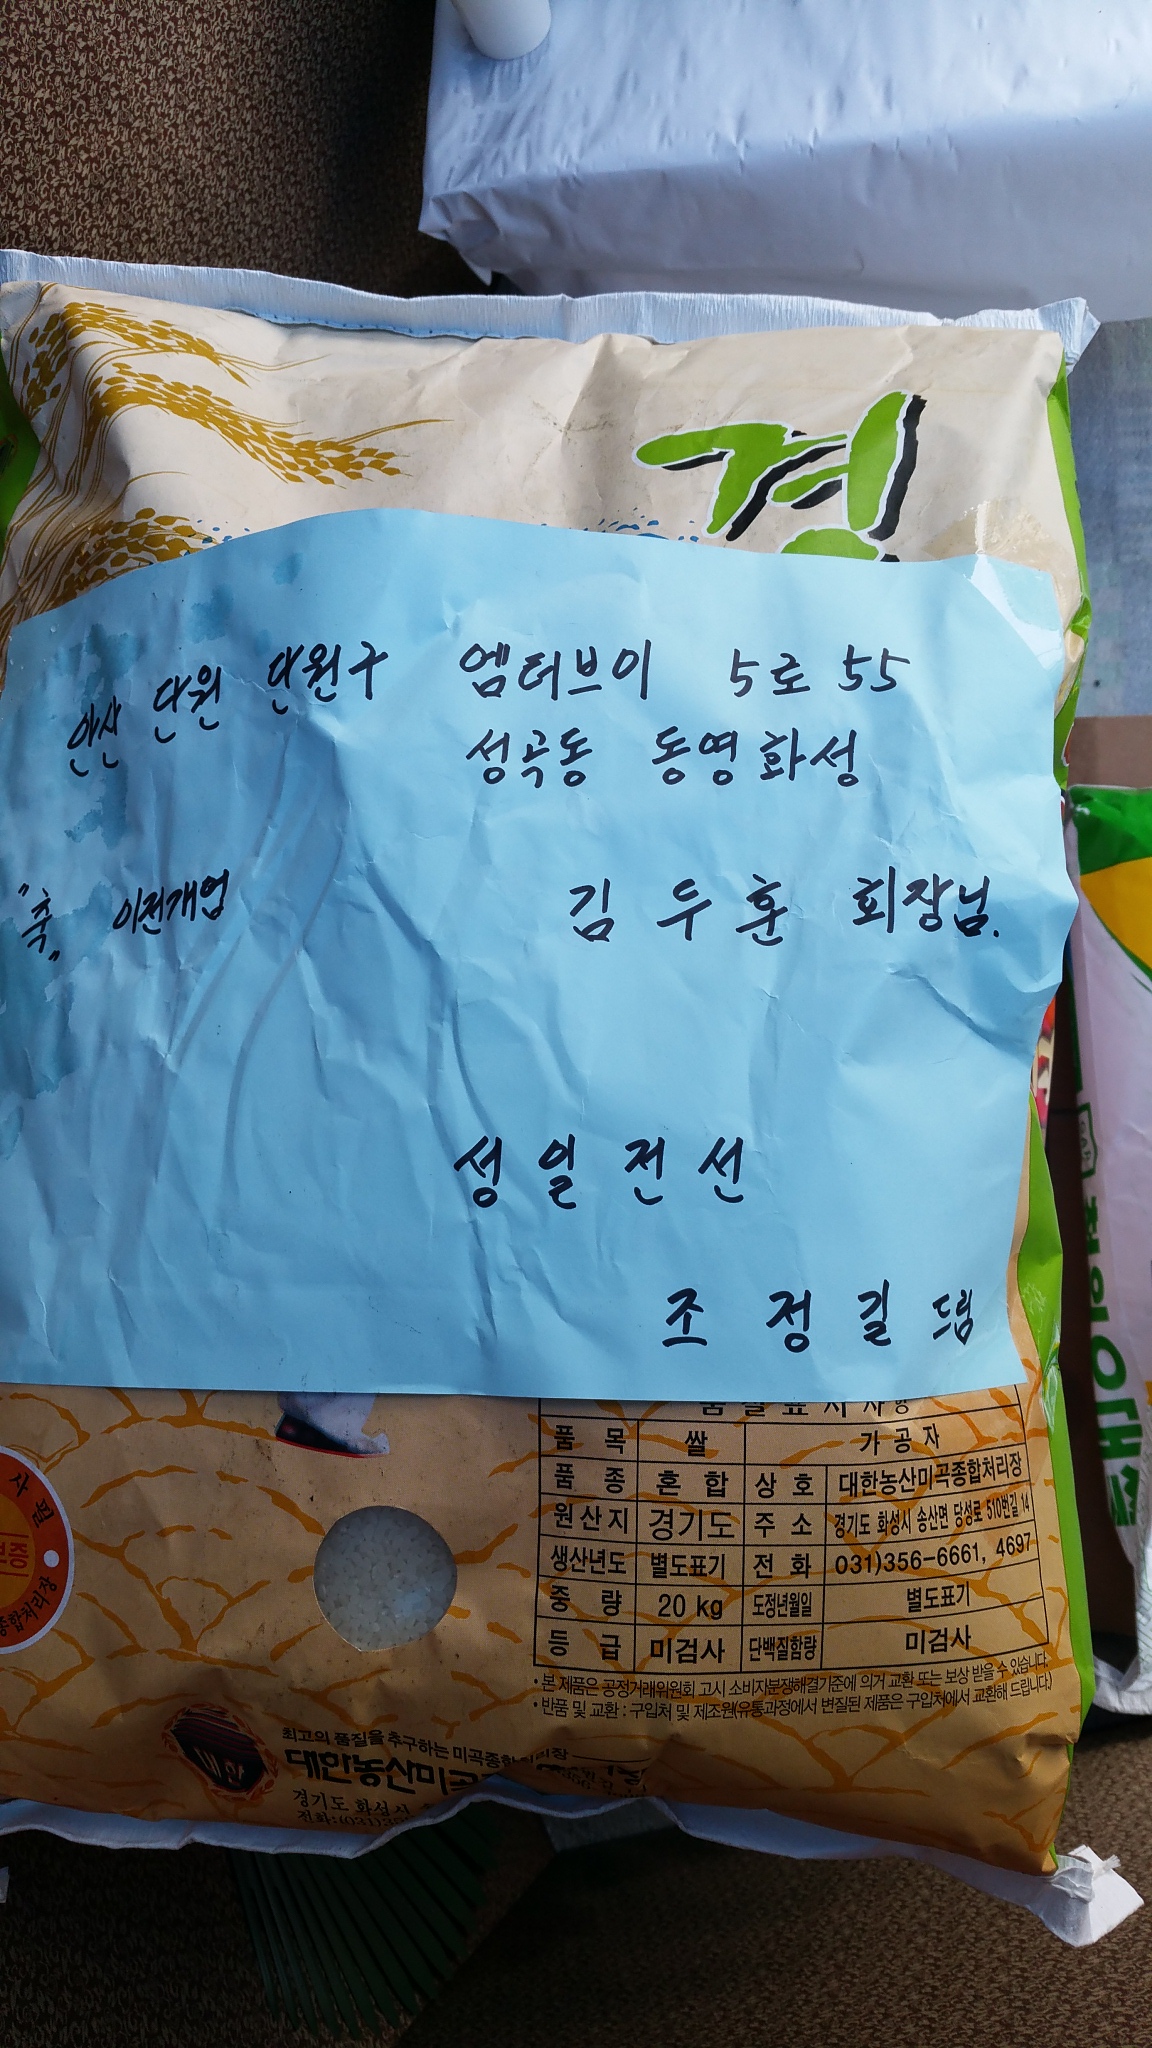 경
안산 단원 단원구 엠터브이 5로 55
성곡동 동영화성
"축" 이전개업 김두훈 회장님.
성일전선
조정길 드림
품질표시사항
품목 쌀 가공자
품종 혼합 상호 대한농산미곡종합처리장
원산지 경기도 주소 경기도 화성시 송산면 당성로 510번길 14
생산년도 별도표기 전화 031)356-6661, 4697
중량 20 kg 도정년월일 별도표기
등급 미검사 단백질함량 미검사
• 본 제품은 공정거래위원회 고시 소비자분쟁해결기준에 의거 교환 또는 보상 받을 수 있습니다.
• 반품 및 교환 : 구입처 및 제조원(유통과정에서 변질된 제품은 구입처에서 교환해 드립니다.)
최고의 품질을 추구하는 미곡종합처리장
대한농산미곡
경기도 화성시
전화:(031)35
대한
보증
종합처리장